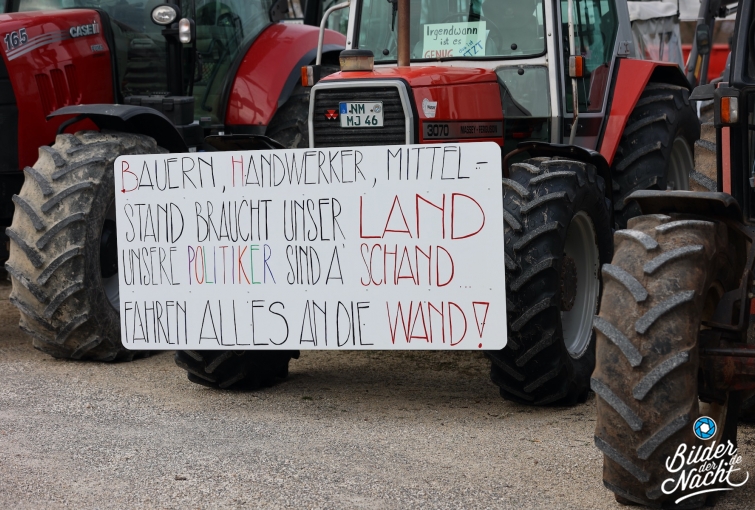 165 CASE III
Irgendwann
ist es
GENUG
NM
MJ 46
3070 MASSEY-FERGUSON
BAUERN, HANDWERKER, MITTEL-
STAND BRAUCHT UNSER LAND
UNSERE POLITIKER SIND A' SCHAND...
FAHREN ALLES AN DIE WAND!
Bilder
der
Nacht.de